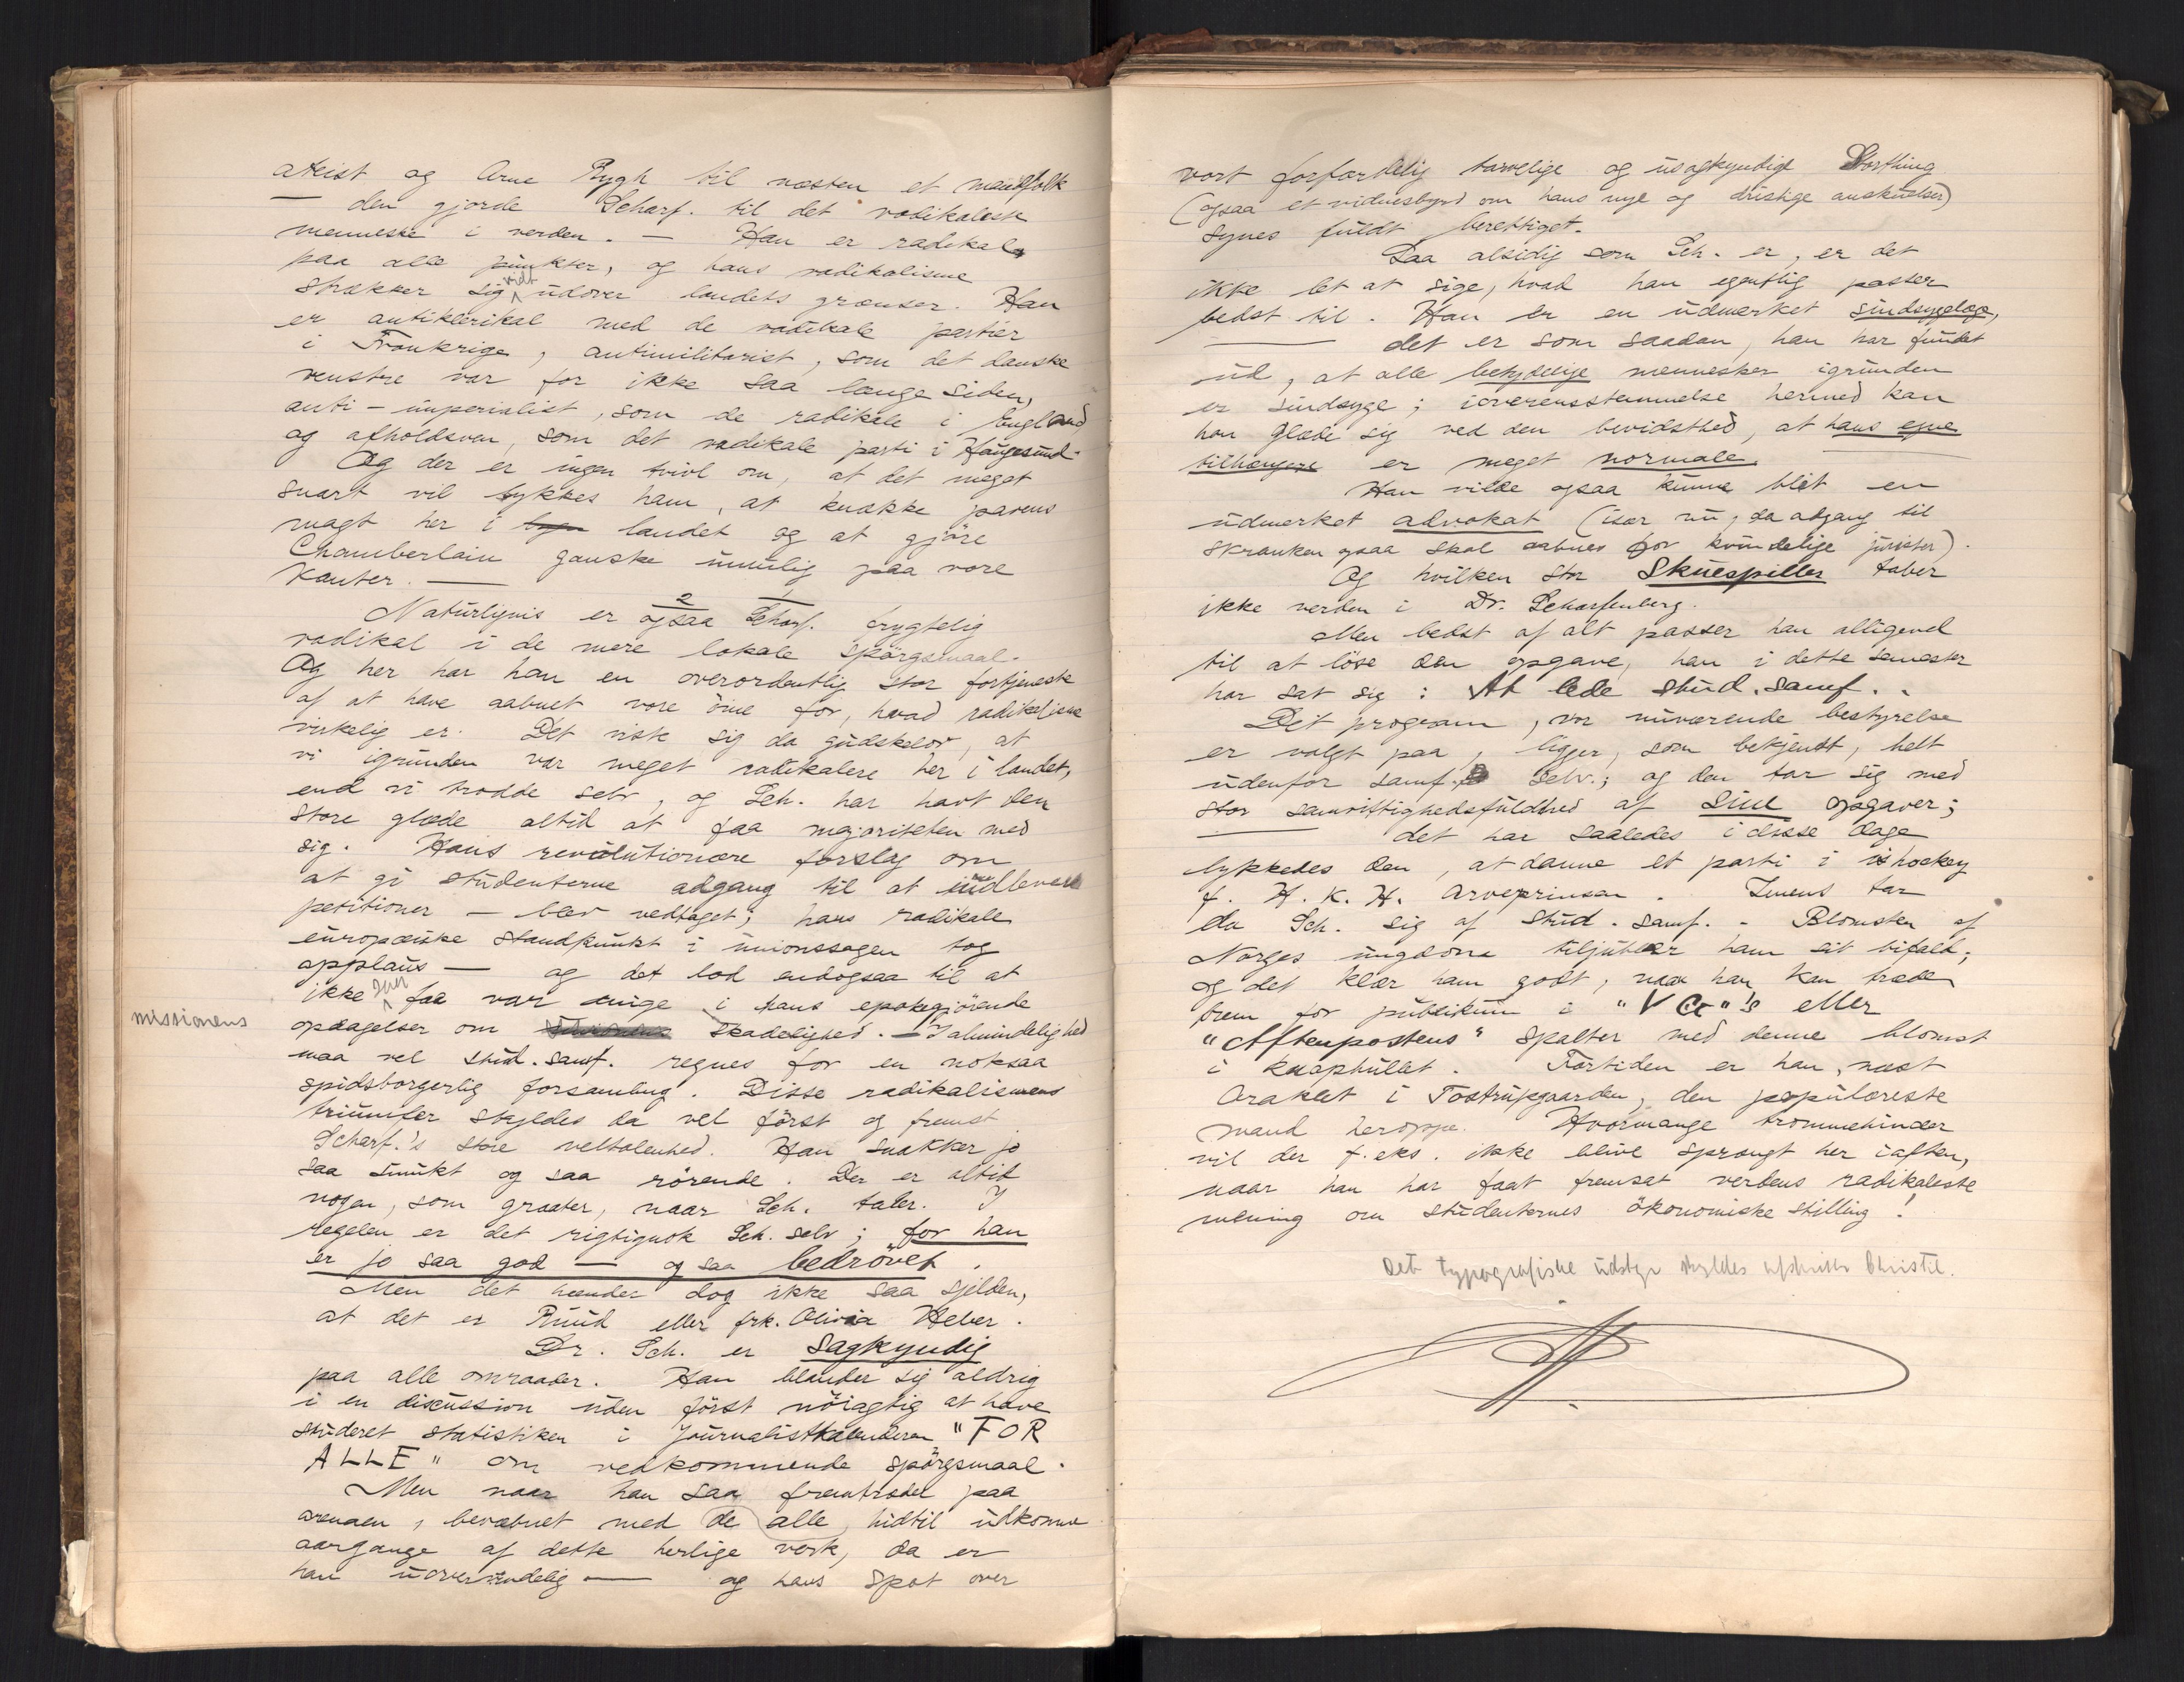 ateist og Arne Rygh til næsten et mandfolk
— den gjorde Scharf. til det radikaleste
menneske i verden. — Han er radikal
paa alle punkter, og hans radikalisme
strækker sig vidt udover landets grænser. Han
er antiklerikal med de radikale partier
i Frankrige, antimilitarist, som det danske
venstre var for ikke saa længe siden,
anti-imperialist, som de radikale i England
og afholdsven, som det radikale parti i Haugesund.
Og der er ingen tvivl om, at det meget
snart vil lykkes ham, at knække pavens
magt her i byen landet og at gjöre
Chamberlain ganske umulig paa vore
kanter. —
Naturligvis er ogsaa Scharf. frygtelig
radikal i de mere lokale spörgsmaal.
Og her har han en overordentlig stor fortjeneste
af at have aabnet vore öine for, hvad radikalisme
virkelig er. Det viste sig da gudskelov, at
vi igrunden var meget radikalere her i landet,
end vi trodde selv, og Sch. har havt den
store glæde altid at faa majoriteten med
sig. Hans revolutionære forslag om
at gi studenterne adgang til at indlevere
petitioner — blev vedtaget; hans radikale
europæiske standpunkt i unionssagen tog
applaus — og det lod endogsaa til at
ikke saa faa var enige i hans epokegjörende
missionens
opdagelser om skadelighed. — I almindelighed
maa vel stud. samf. regnes for en noksaa
spidsborgerlig forsamling. Disse radikalismens
triumfer skyldes da vel först og fremst
Scharf.'s store veltalenhed. Han snakker jo
saa smukt og saa rörende. Der er altid
nogen, som graater, naar Sch. taler. I
regelen er det rigtignok Sch. selv; for han
er jo saa god — og saa bedrövet.
Men det hænder dog ikke saa sjelden,
at det er Ruud eller frk. Olivia Heber.
Dr. Sch. er Sagkyndig
paa alle omraader. Han blander sig aldrig
i en discussion uden först nöiagtig at have
studeret statistiken i Journalistkalenderen "FOR
ALLE" om vedkommende spörgsmaal.
Men naar han saa fremtræder paa
arenaen, bevæbnet med de alle hidtil udkomne
aargange af dette herlige verk, da er
han uovervindelig — og hans spot over
vort forfærdelig tarvelige og usagkyndige Storthing
(ogsaa et vidnesbyrd om hans nye og dristige anskuelser)
synes fuldt berettiget.
Saa alsidig som Sch. er, er det
ikke let at sige, hvad han egentlig passer
bedst til. Han er en udmerket sindsygelæge,
— det er som saadan, han har fundet
ud, at alle betydelige mennesker igrunden
er sindsyge; ioverensstemmelse hermed kan
han glæde sig ved den bevidsthed, at hans egne
tilhængere er meget normale. —
Han vilde ogsaa kunne blit en
udmerket advokat (især nu, da adgang til
skranken ogsaa skal aabnes for kvindelige jurister).
Og hvilken stor Skuespiller taber
ikke verden i Dr. Scharfenberg.
Men bedst af alt passer han alligevel
til at löse den opgave, han i dette semester
har sat sig: At lede stud. samf..
Det program, vor nuværende bestyrelse
er valgt paa, ligger, som bekjendt, helt
udenfor samf. selv.; og den tar sig med
stor samvittighedsfuldhed af sine opgaver;
— det har saaledes i disse dage
lykkedes den, at danne et parti i ishockey
f. H. K. H. arveprinsen. Imens tar
da Sch. sig af stud. samf.. Blomsten af
Norges ungdom tiljubler ham sit bifald;
og det klær ham godt, naar han kan træde
frem for publikum i "VG"'s eller
"Aftenpostens" spalter med denne blomst
i knaphullet. Fortiden er han, næst
Oraklet i Tostrupgaarden, den populæreste
mand heroppe. Hvormange trommehinder
vil der f.eks. ikke blive sprængt her iaften,
naar han har faat fremsat verdens radikaleste
mening om studenternes ökonomiske stilling!
Det typografiske udstyr skyldes Christie.